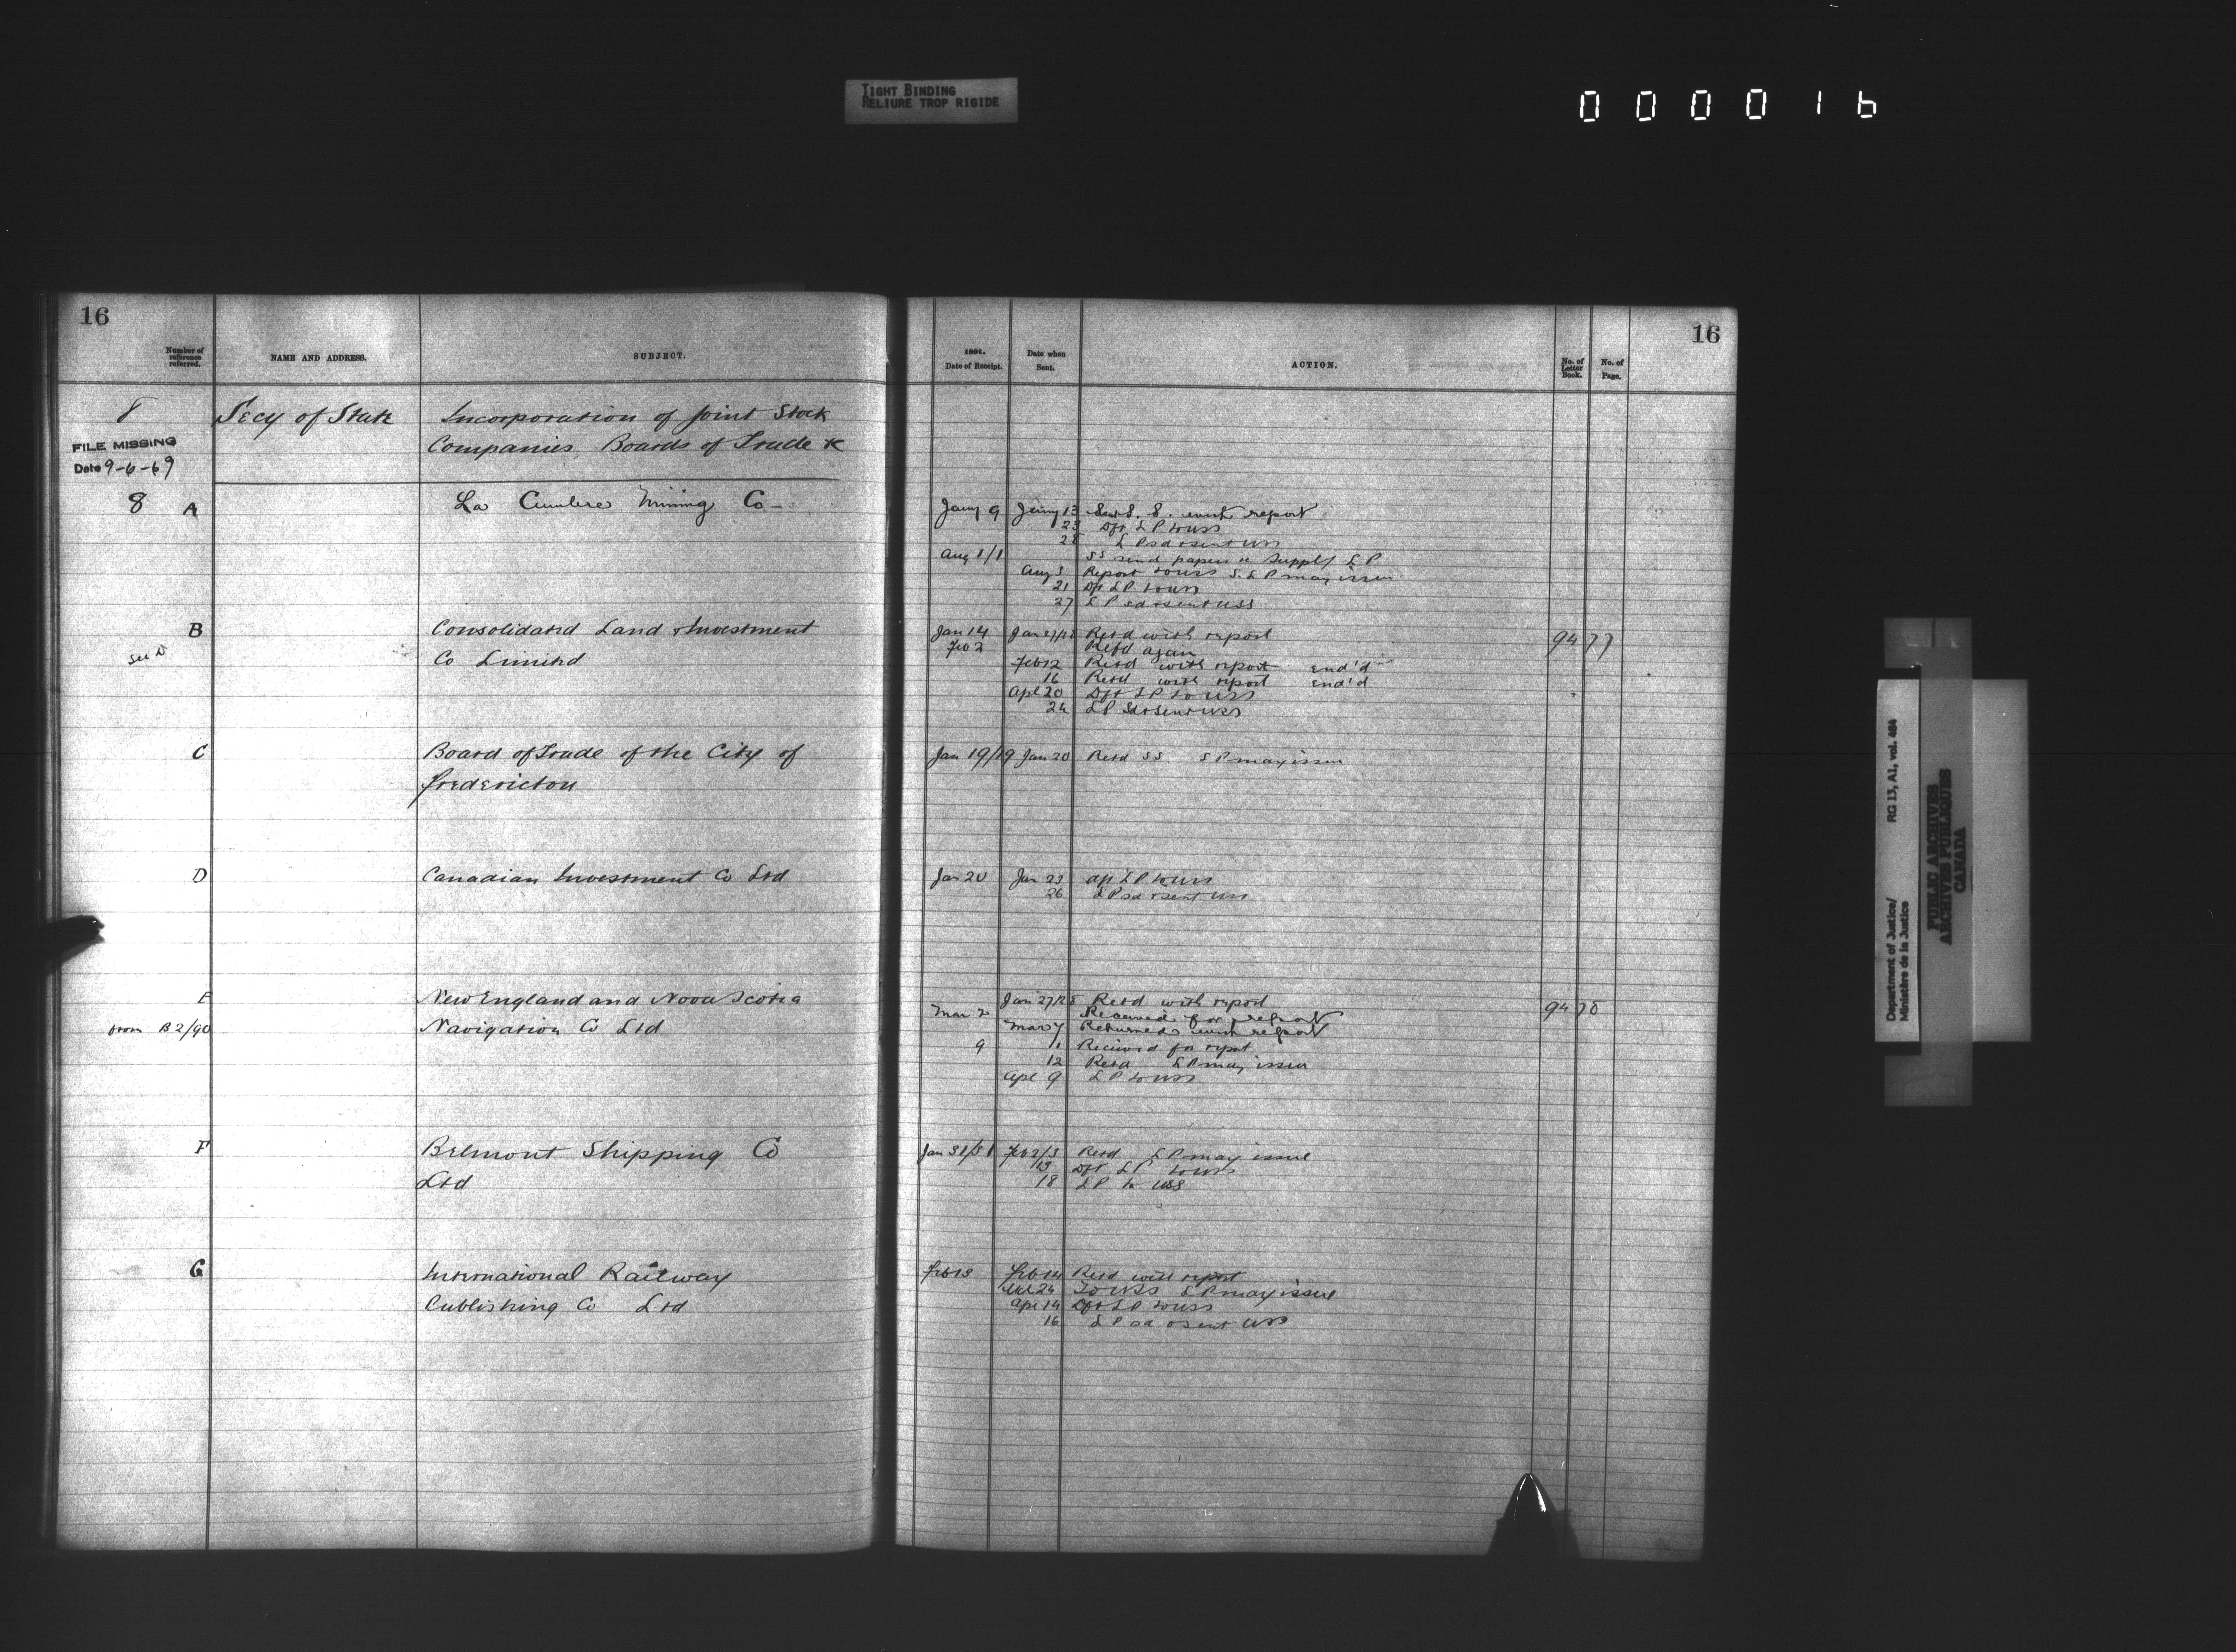 TIGHT BINDING
RELIURE TROP RIGIDE
0 0 0 0 1 6
16
Number of reference referred.
NAME AND ADDRESS.
SUBJECT.
8 Secy of State Incorporation of Joint Stock
Companies, Boards of Trade &c
FILE MISSING
Date 9-6-69
8 A La Cumbre Mining Co -
B Consolidated Land & Investment
Co Limited
See D
C Board of Trade of the City of
Fredericton
D Canadian Investment Co Ltd
E New England and Nova Scotia
from B 2/90 Navigation Co Ltd
F Belmont Shipping Co
Ltd
G International Railway
Publishing Co Ltd
16
1891.
Date of Receipt.
Date when Sent.
ACTION.
No. of Letter Book.
No. of Page.
Jany 9 Jany 13 S. S. with report
23 Dft LP to USS
28 LP sd & sent USS
Aug 1/1 SS send papers re Suppl LP
Aug 3 Report to USS S. LP may issue
21 Dft LP to USS
27 LP sd & sent USS
Jan 14 Jan 27/28 Retd with report 94 77
Feb 2 Refd again
Feb 12 Retd with report end'd
16 Retd with report end'd
Apl 20 Dft LP to USS
24 LP Sd & Sent USS
Jan 19/19 Jan 20 Retd SS. LP may issue
Jan 20 Jan 23 Dft LP to USS
26 LP sd & sent USS
Jan 27/28 Retd with report 94 78
Mar 2 Received for report
Mar 7 Returned with report
9 11 Received for report
12 Retd LP may issue
Apl 9 LP to USS
Jan 31/31 Feb 2/3 Retd LP may issue
13 Dft LP to USS
18 LP to USS
Feb 13 Feb 14 Retd with report
Mar 24 To USS LP may issue
Apl 14 Dft LP to USS
16 LP sd & sent USS
Department of Justice/ RG 13, A1, vol. 484
Ministère de la Justice
PUBLIC ARCHIVES
ARCHIVES PUBLIQUES
CANADA